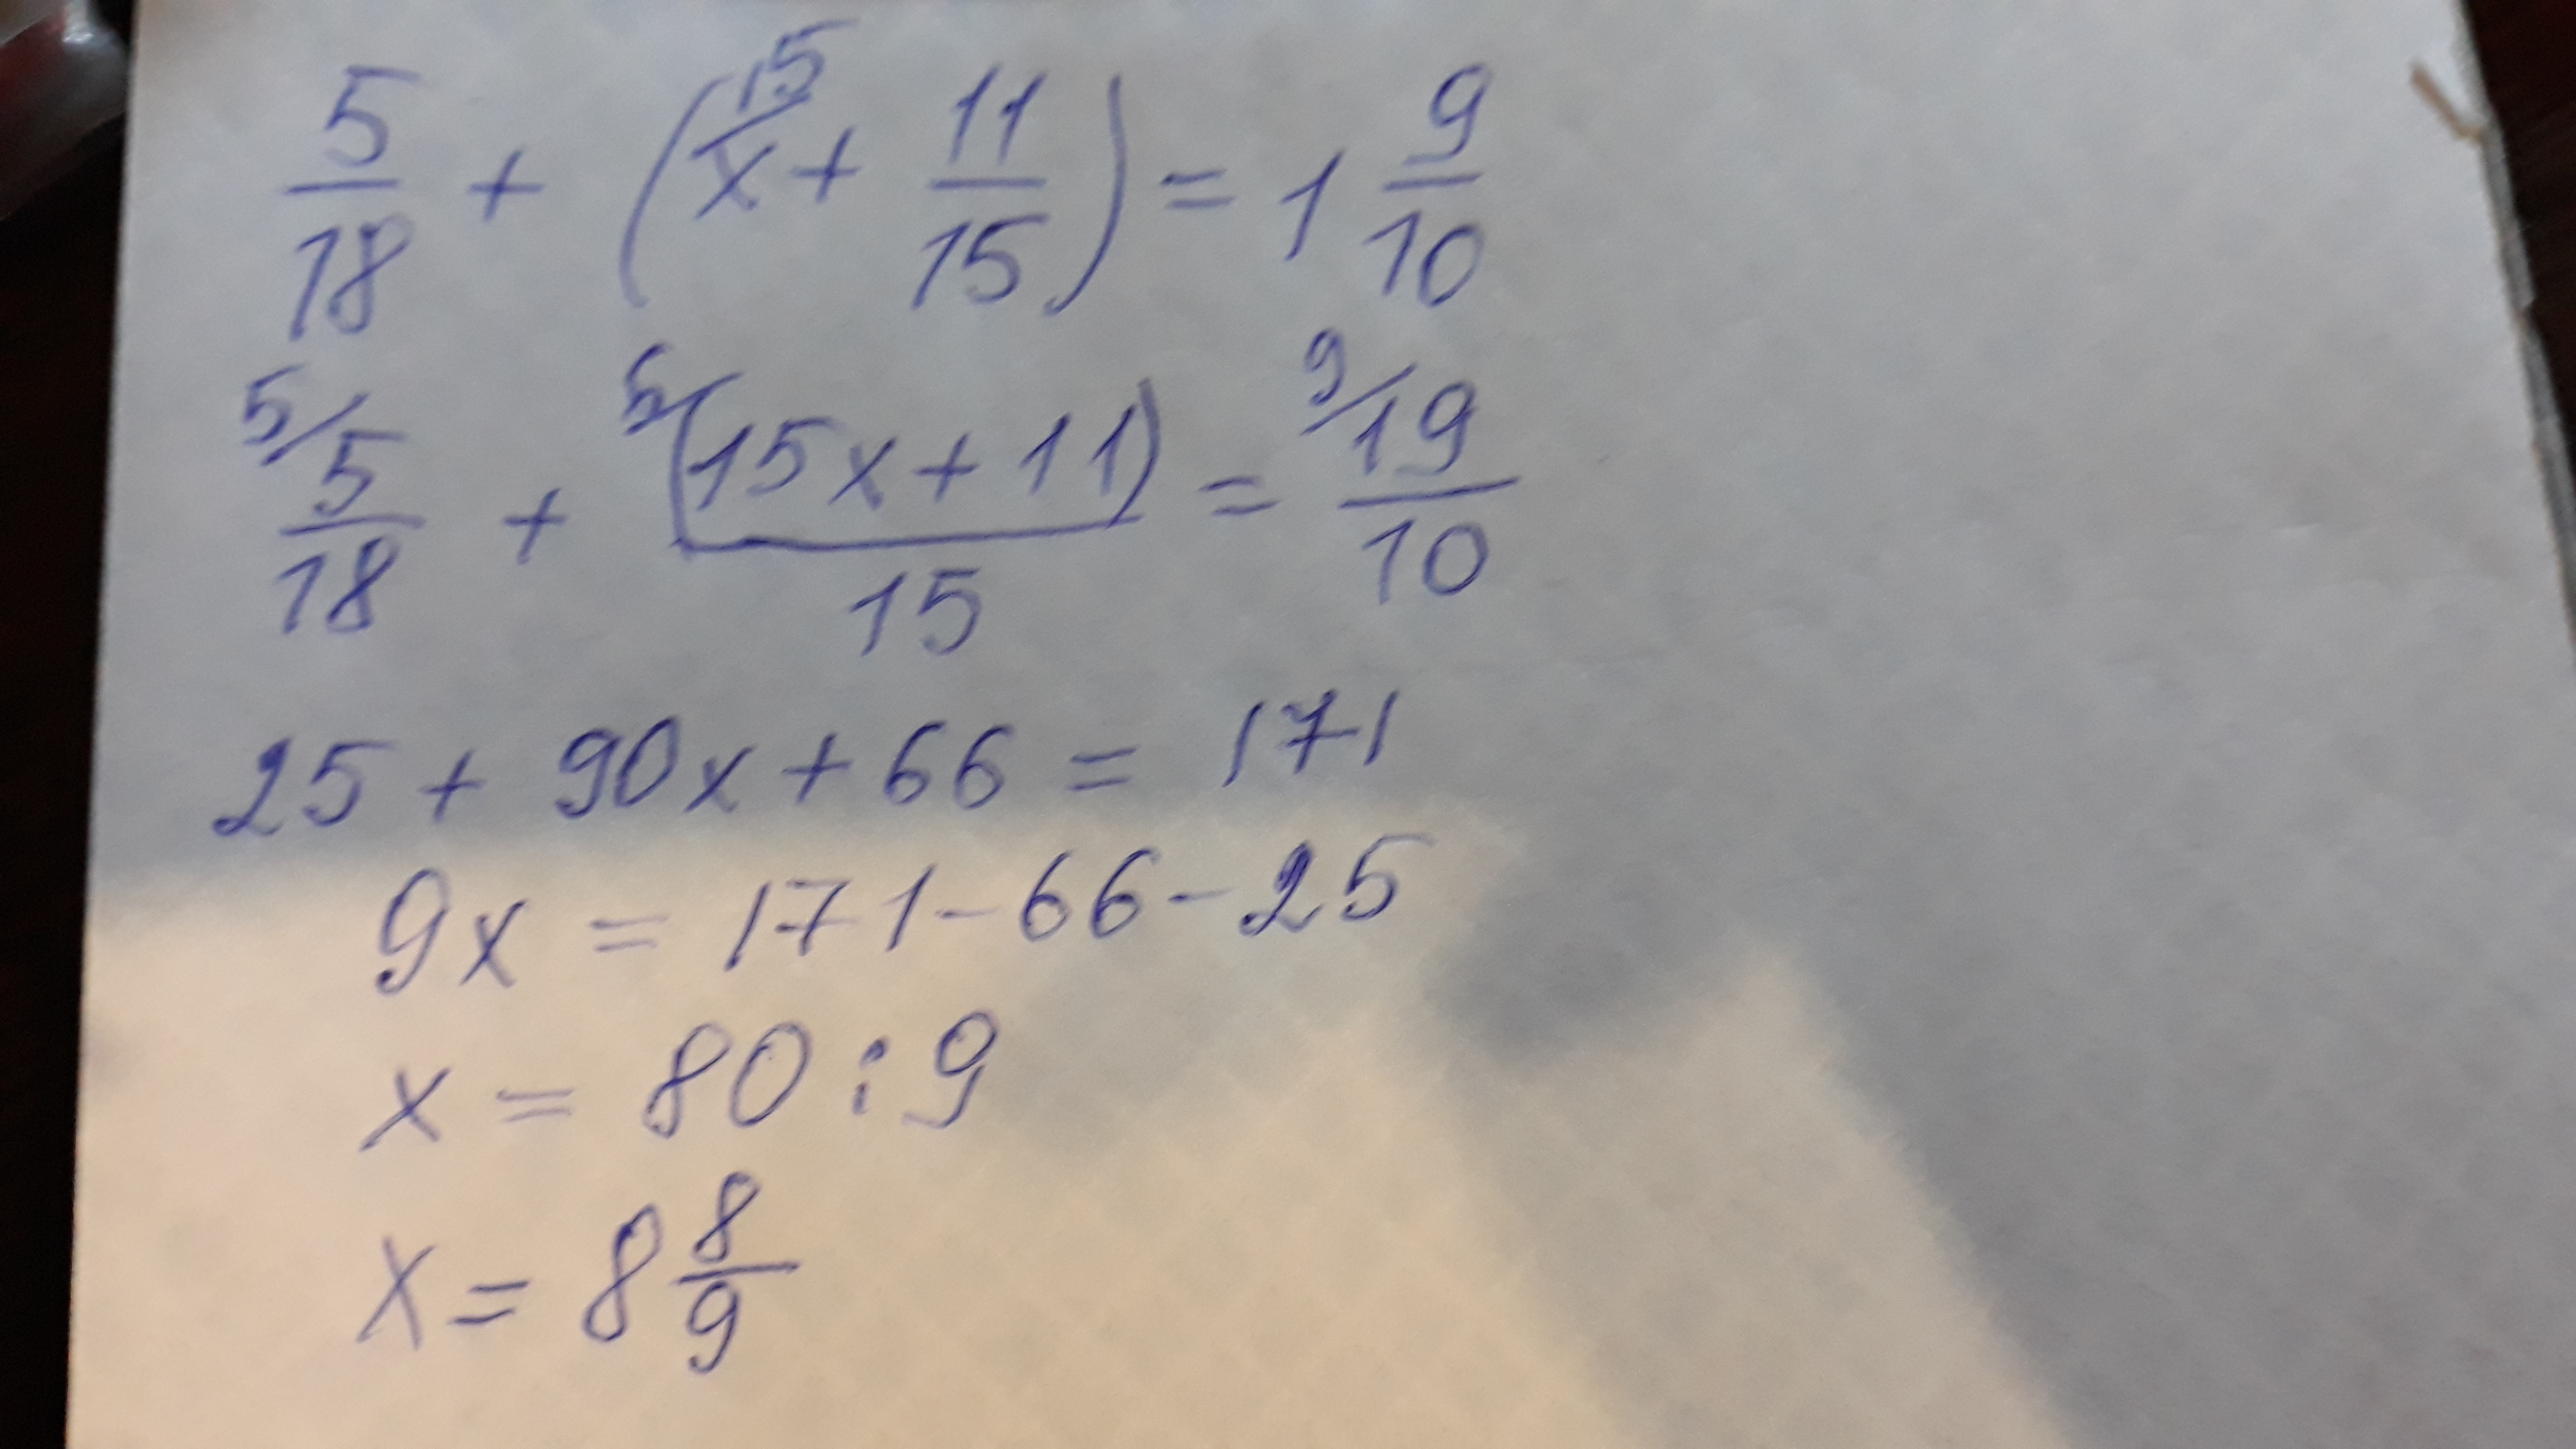 5/18 + (15/x + 11/15) = 1 9/10
5/ 5/18 + 6/ (15x+11)/15 = 9/ 19/10
25 + 90x + 66 = 171
9x = 171-66-25
x = 80 : 9
x = 8 8/9